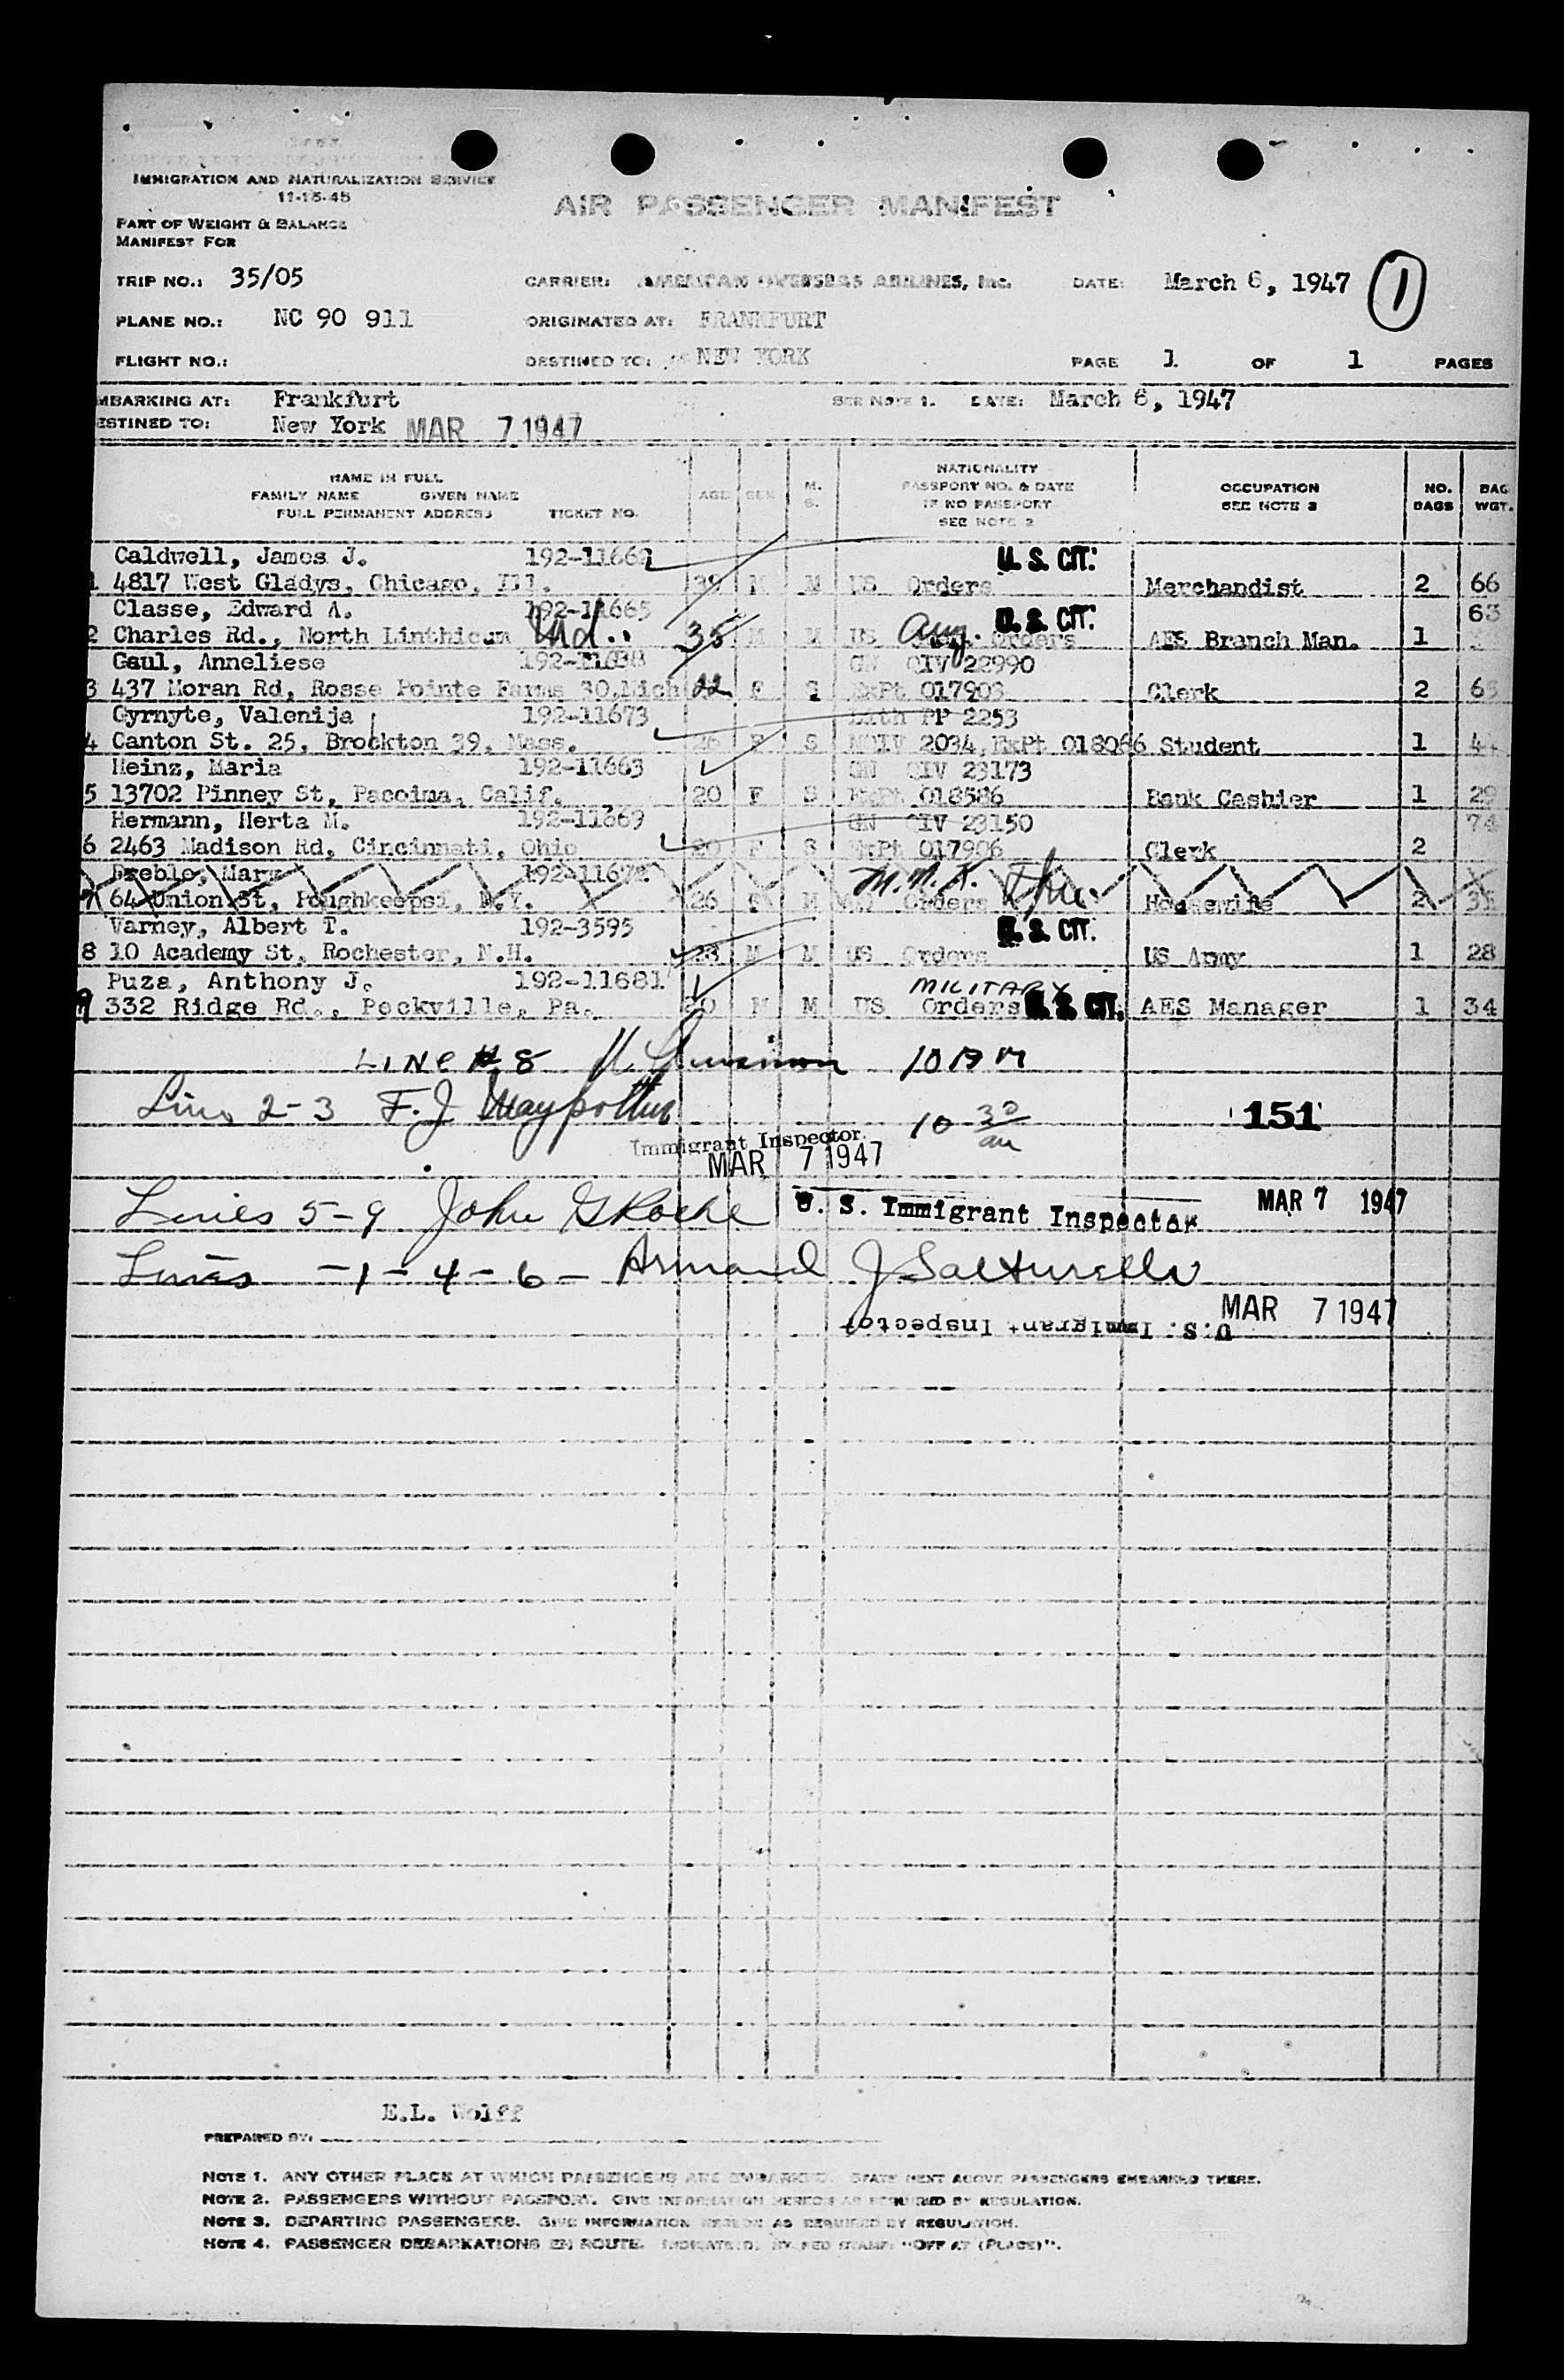 IMMIGRATION AND NATURALIZATION SERVICE
11-15-45
AIR PASSENGER MANIFEST
PART OF WEIGHT & BALANCE
MANIFEST FOR
TRIP NO.: 35/05 CARRIER: AMERICAN OVERSEAS AIRLINES, Inc. DATE: March 6, 1947 1
PLANE NO.: NC 90 911 ORIGINATED AT: FRANKFURT
FLIGHT NO.: DESTINED TO: NEW YORK PAGE 1 OF 1 PAGES
MBARKING AT: Frankfurt SEE NOTE 1. DATE: March 6, 1947
ESTINED TO: New York MAR 7 1947
NAME IN FULL
FAMILY NAME GIVEN NAME
FULL PERMANENT ADDRESS TICKET NO.
AGE SEX M. S.
NATIONALITY
PASSPORT NO. & DATE
IF NO PASSPORT
SEE NOTE 2
OCCUPATION
SEE NOTE 3
NO. BAGS
BAG WGT.
Caldwell, James J. U. S. CIT.
1 4817 West Gladys, Chicago, Ill. M M US Orders Merchandist 2 66
Classe, Edward A. 192-11665 U. S. CIT. 63
2 Charles Rd., North Linthicum Md. 35 M M US Orders AES Branch Man. 1
Gaul, Anneliese GN QIV 22990
3 437 Moran Rd, Rosse Pointe Farms 30, Mich 22 F S ExPt 017903 Clerk 2
Gyrnyte, Valenija 192-11673 Lith PP 2253
4 Canton St. 25, Brockton 29, Mass. 26 F S NQIV 2034, ExPt 018066 Student 1
Heinz, Maria 192-11663 GN QIV 23173
5 13702 Pinney St, Pacoima, Calif. 20 F S ExPt 018586 Bank Cashier 1 29
Hermann, Herta M. 192-11669 GN QIV 23150 74
6 2463 Madison Rd, Cincinnati, Ohio 20 F S ExPt 017906 Clerk 2
Mary 192-11672
7 64 Union St, Poughkeepsi, N.Y. 26 F M Orders Housewife 2
Varney, Albert T. 192-3595 U. S. CIT.
8 10 Academy St, Rochester, N.H. 28 M M US Orders US Army 1 28
Puza, Anthony J. 192-11681 MILITARY
9 332 Ridge Rd., Peckville, Pa. M M US Orders U. S. CIT. AES Manager 1 34
LINE # 8 10 AM
Lines 2-3 F. J. 10 30 am 151
Immigrant Inspector
MAR 7 1947
Lines 5-9 John G Roche U. S. Immigrant Inspector MAR 7 1947
Lines -1-4-6- Armand J
MAR 7 1947
U.S. Immigrant Inspector
E.L. Wolff
PREPARED BY:
NOTE 1. ANY OTHER PLACE AT WHICH PASSENGERS ARE EMBARKED. STATE NEXT ABOVE PASSENGERS EMBARKED THERE.
NOTE 2. PASSENGERS WITHOUT PASSPORT. GIVE INFORMATION HEREON AS REQUIRED BY REGULATION.
NOTE 3. DEPARTING PASSENGERS. GIVE INFORMATION HEREON AS REQUIRED BY REGULATION.
NOTE 4. PASSENGER DEBARKATIONS EN ROUTE. INDICATED BY RED STAMP "OFF AT (PLACE)".